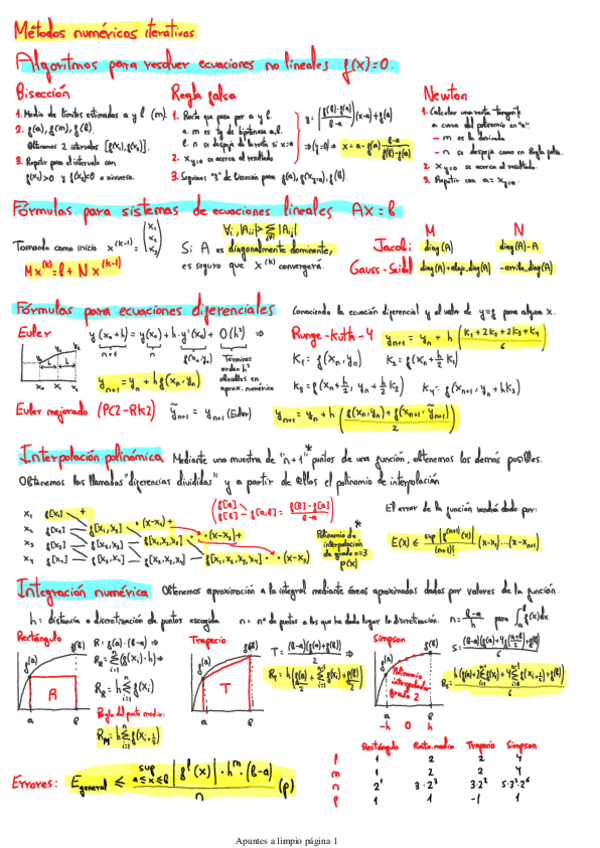 Métodos numéricos iterativos
Algoritmos para resolver ecuaciones no lineales f(x)=0.
Bisección
1. Media de límites estimados a y b (m).
2. f(a), f(m), f(b).
Obtenemos 2 intervalos [f(x₁), f(x₂)].
3. Repetir para el intervalo con
f(x₁)>0 y f(x₂)<0 o viceversa.
Regla falsa
1. Recta que pasa por a y b.
a. m es tg de hipotenusa a,b.
b. n se despeja de la recta si x=a
2. x_{y=0} se acerca al resultado
3. Seguimos "3" de bisección para f(a), f(x_{y=0}), f(b).
y = (f(b)-f(a))/(b-a) (x-a)+f(a)
⇒(y=0)⇒ x = a - f(a) (b-a)/(f(b)-f(a))
Newton
1. Calcular una recta tangente
a curva del polinomio en "a".
- m es la derivada
- n se despeja como en Regla falsa.
2. x_{y=0} se acerca al resultado.
3. Repetir con a = x_{y=0}.
Fórmulas para sistemas de ecuaciones lineales Ax = b
Tomando como inicio x^(k-1) = (x₁ x₂ x₃)
Mx^(k) = b + Nx^(k-1)
∀i, |Aii| > Σ |Aij|
Si A es diagonalmente dominante,
es seguro que x^(k) convergerá.
M N
Jacobi diag(A) diag(A)-A
Gauss-Seidel diag(A)+abajo_diag(A) -arriba_diag(A)
Fórmulas para ecuaciones diferenciales Conociendo la ecuación diferencial y el valor de y=f para algún x.
Euler y(x₀+h) = y(x₀) + h·y'(x₀) + O(h²) ⇒
n+1 n f(x₀,y₀) Términos
orden h²
obviables en
aprox. numérica
y_{n+1} = y_n + h f(x_n, y_n)
Runge-Kuth-4 y_{n+1} = y_n + h (K₁ + 2K₂ + 2K₃ + K₄)/6
K₁ = f(x_n, y_n) K₂ = f(x_n + h/2, y_n + h/2 K₁)
K₃ = f(x_n + h/2, y_n + h/2 K₂) K₄ = f(x_{n+1}, y_n + hK₃)
Euler mejorado (PC2-RK2) ỹ_{n+1} = y_{n+1} (Euler) y_{n+1} = y_n + h (f(x_n,y_n) + f(x_{n+1}, ỹ_{n+1}))/2
Interpolación polinómica Mediante una muestra de "n+1"* puntos de una función, obtenemos los demás posibles.
Obtenemos las llamadas "diferencias divididas" y a partir de ellas el polinomio de interpolación
(f[a] f[b] f[a,b] = (f[b]-f[a])/(b-a))
x₁ f[x₁] +
x₂ f[x₂] f[x₁,x₂] ·(x-x₁)+
x₃ f[x₃] f[x₂,x₃] f[x₁,x₂,x₃] ·(x-x₂)+
x₄ f[x₄] f[x₃,x₄] f[x₂,x₃,x₄] f[x₁,x₂,x₃,x₄] ·(x-x₃)
*
Polinomio de
interpolación
de grado n=3
P(x)
El error de la función vendrá dado por:
E(x) ≤ sup|f^(n+1)(x)|/(n+1)! (x-x₁)...(x-x_{n+1})
Integración numérica Obtenemos aproximación a la integral mediante áreas aproximadas dadas por valores de la función.
h = distancia o discretización de puntos escogida n = nº de puntos a los que ha dado lugar la discretización. n = (b-a)/h para ∫ₐᵇ f(x)dx
Rectángulo
f(a) f(b)
R
a b
R = f(a)·(b-a) ⇒
R_R = Σ f(xᵢ)·h ⇒
R_R = h Σ f(xᵢ)
Regla del punto medio:
R_M = h Σ f(x_{i+½})
Trapecio
f(a) f(b)
T
a b
T = (b-a)(f(a)+f(b))/2 ⇒
R_T = h (f(a)/2 + Σ f(xᵢ) + f(b)/2)
Simpson
f(a) f(b)
Polinomio
interpolador
grado 2
a b
-h 0 h
S = (b-a)(f(a)+4f((a+b)/2)+f(b))/6
R_S = h(f(a)+2Σf(xᵢ)+4Σf(x_{i+½})+f(b))/6
Errores: E_general ≤ sup a≤x≤b |f^l(x)|·h^m·(b-a)/n (p)
Rectángulo Punto medio Trapecio Simpson
l 1 2 2 4
m 1 2 2 4
n 2¹ 3·2³ 3·2² 5·3²·2⁶
p 1 1 -1 1
Apuntes a limpio página 1